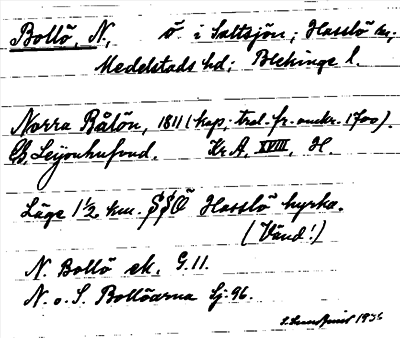 Bollö, N. ö i Saltsjön; Hasslö sn;
Medelstads hd; Blekinge l.
Norra Bålön, 1811 (kop; trol. fr. omkr. 1700).
Leijonhufvud. Kr A, XVIII, H.
Läge 1½ km. SSÖ Hasslö kyrka.
(Vänd!)
N. Bollö ek. G. 11.
N. o. S. Bollöarna Sj. 96.
1936